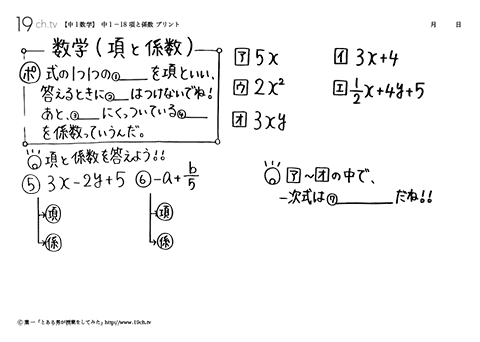 19ch.tv 【中1数学】 中1-18 項と係数 プリント 月 日
数学(項と係数)
ポ 式の1つ1つの①____を項といい、
答えるときに②__はつけないでね!
あと、③____にくっついている④____
を係数っていうんだ。
項と係数を答えよう!!
⑤ 3x-2y+5 ⑥ -a+b/5
項 項
係 係
ア 5x イ 3x+4
ウ 2x² エ 1/2x+4y+5
オ 3xy
ア~オの中で、
一次式は⑦________だね!!
© 葉一「とある男が授業をしてみた」http://www.19ch.tv